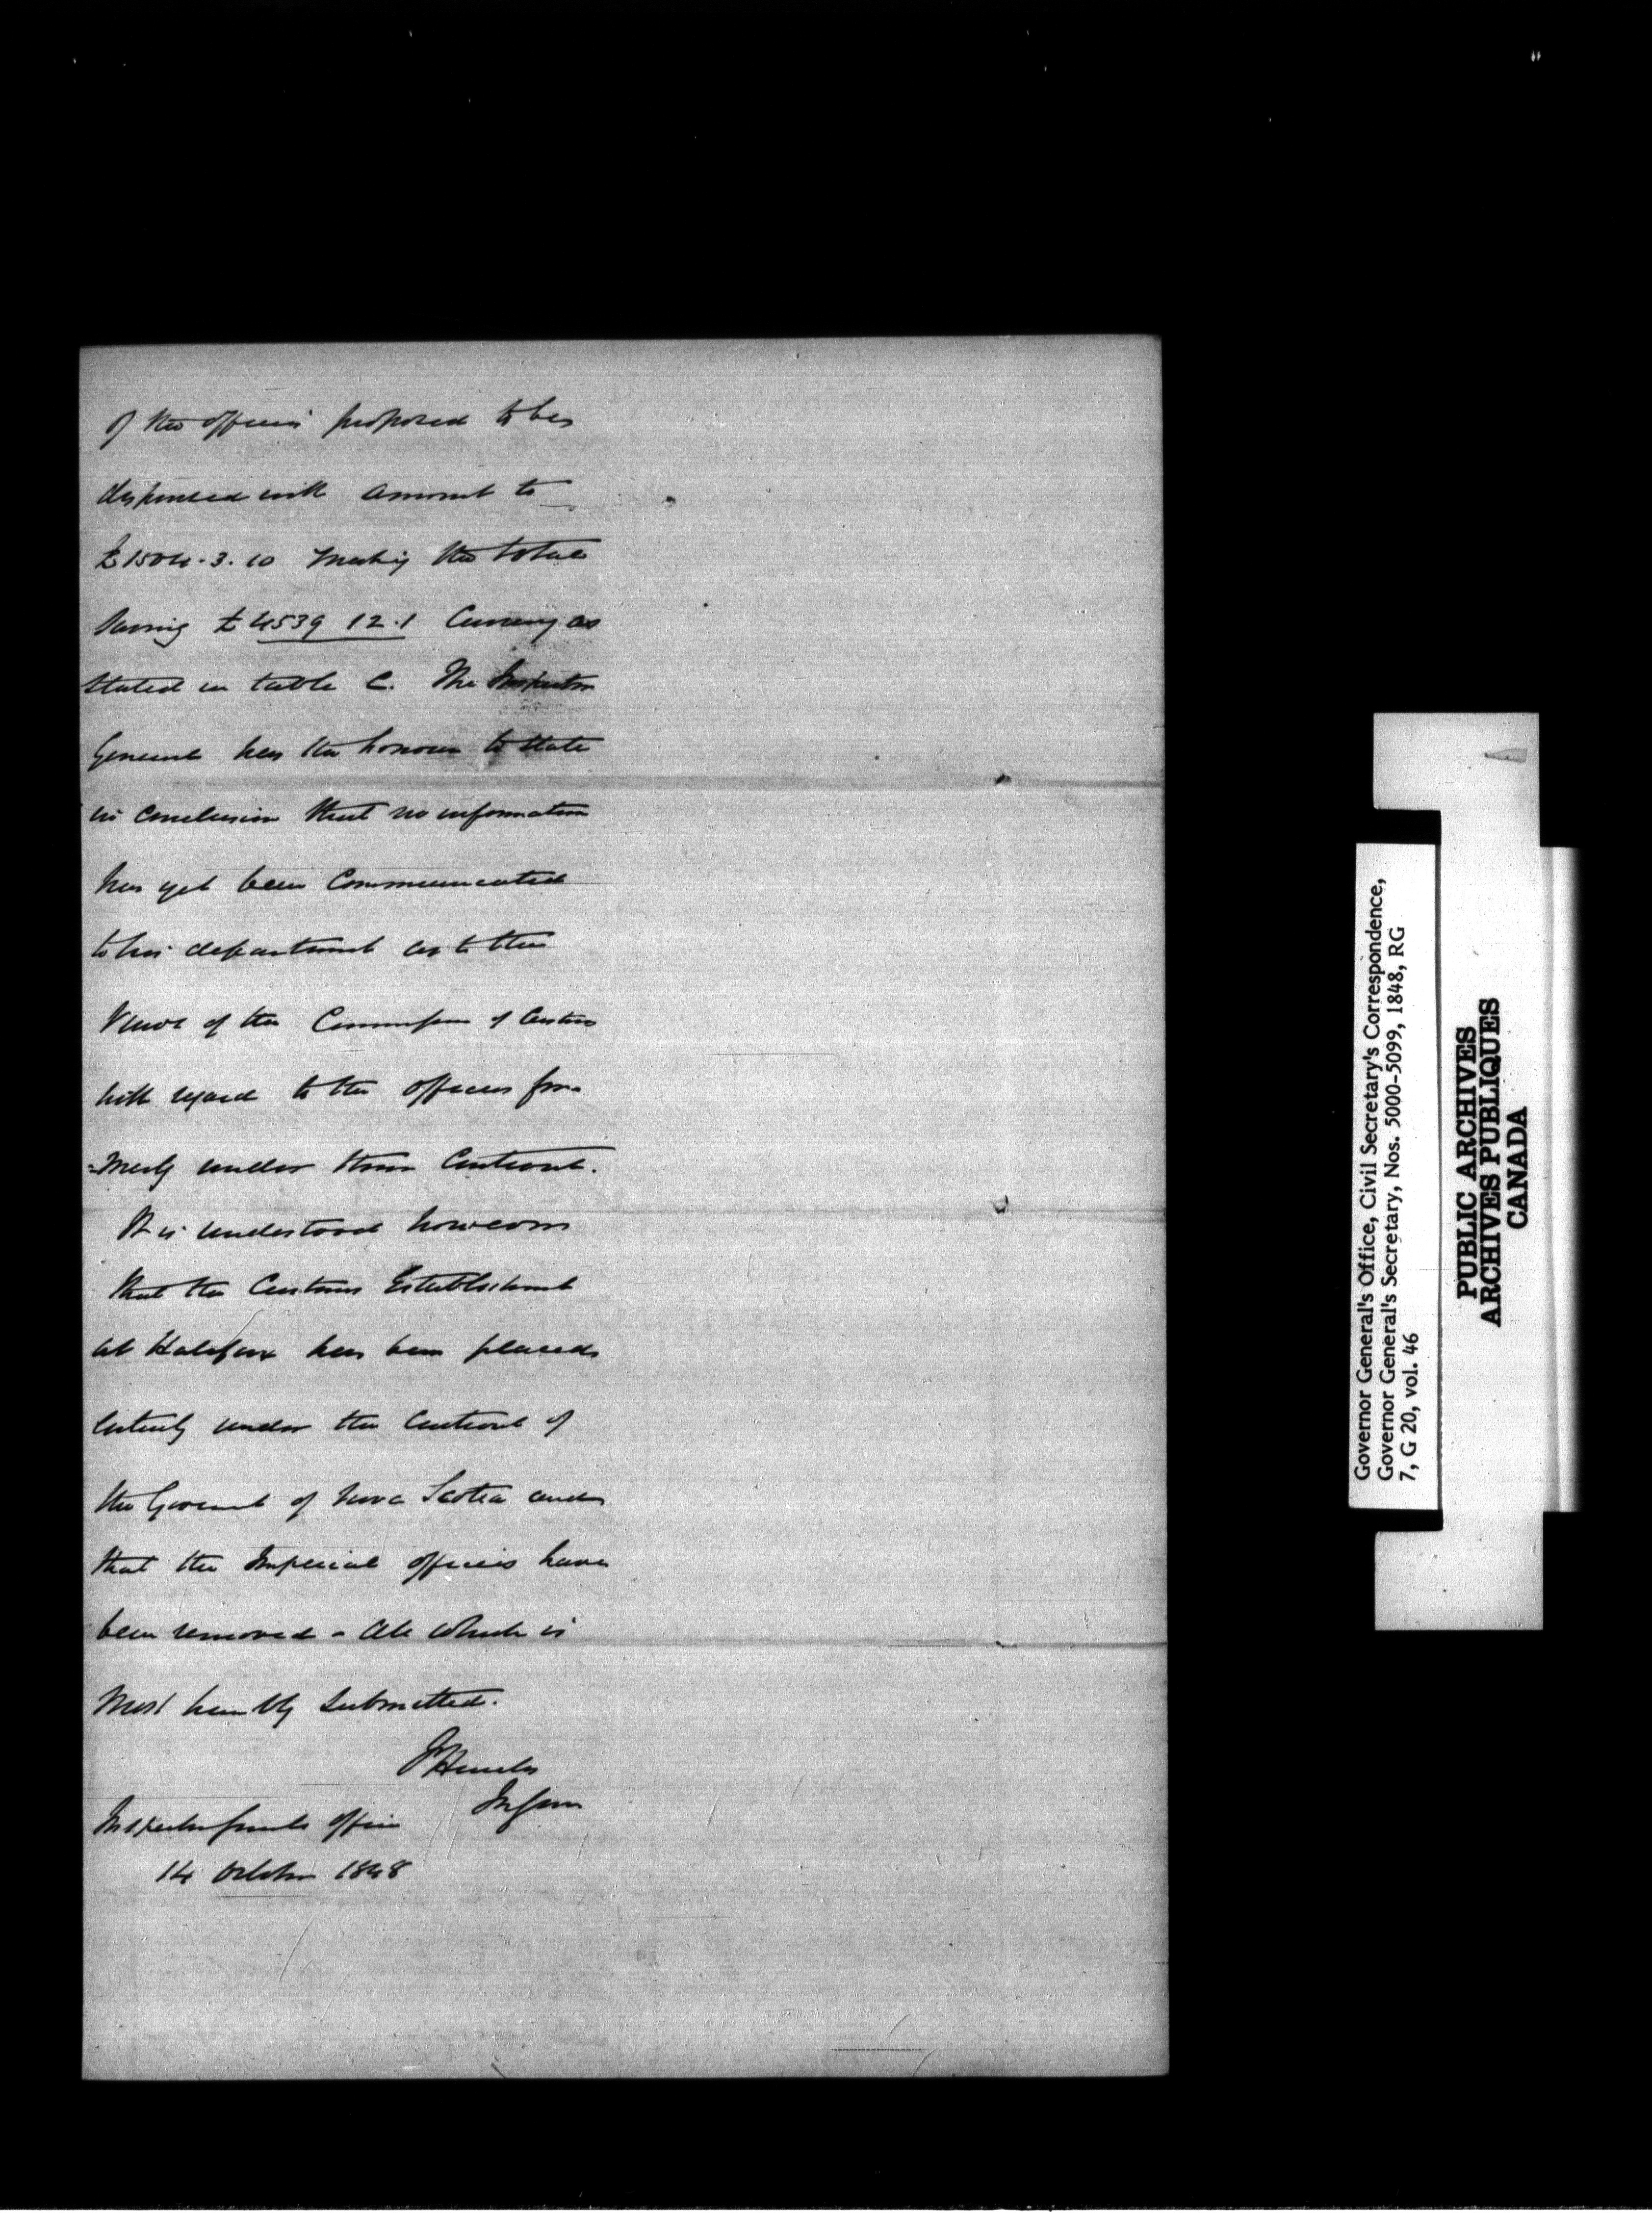 of the officers proposed to be
dispensed with amount to
£1504.3.10 making the total
saving £4539 12.1 Currency as
stated in table C. The Inspector
General has the honour to state
in conclusion that no information
has yet been Communicated
to his department as to the
views of the Commissrs of Customs
with regard to the officers for
=merly under their Controul.
It is understood however
that the Customs Establishment
at Halifax has been placed
entirely under the Controul of
the Governmt of Nova Scotia and
that the Imperial officers have
been removed - All which is
most humbly submitted.
F Hincks
In Gen
Inspector Generals office
14 October 1848
Governor General's Office, Civil Secretary's Correspondence,
Governor General's Secretary, Nos. 5000-5099, 1848, RG
7, G 20, vol. 46
PUBLIC ARCHIVES
ARCHIVES PUBLIQUES
CANADA